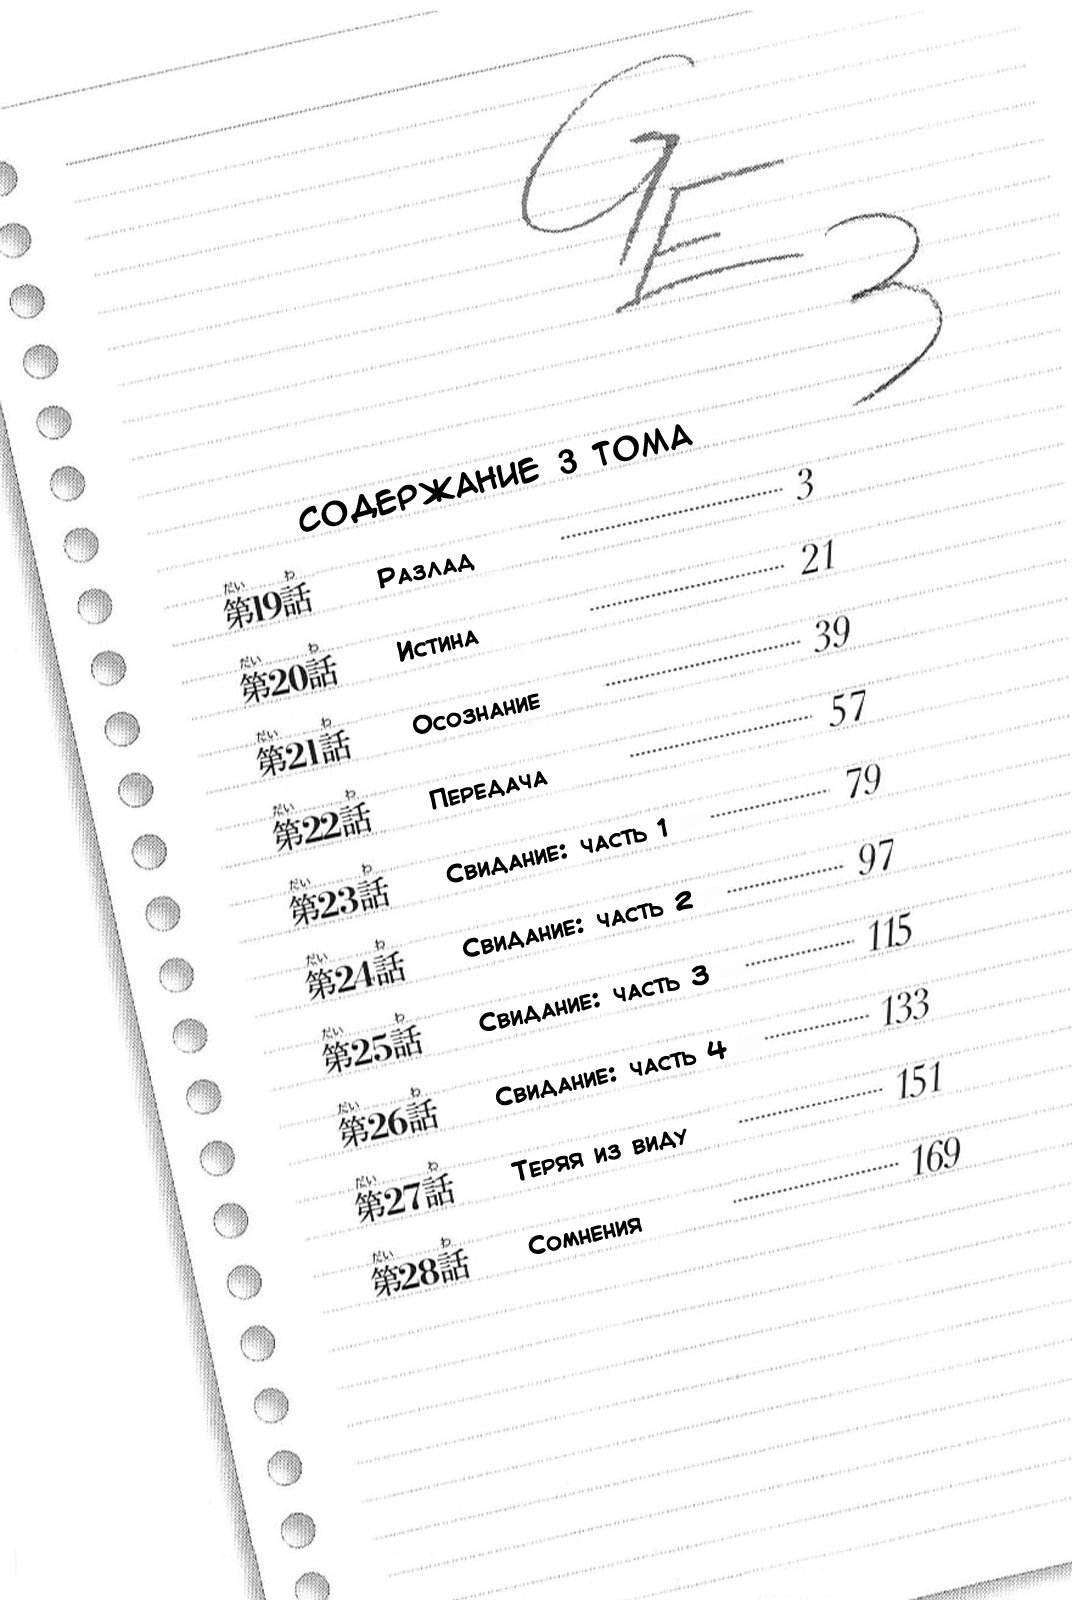 GE 3
СОДЕРЖАНИЕ 3 ТОМА
第19話 Разлад 3
第20話 Истина 21
第21話 Осознание 39
第22話 Передача 57
第23話 Свидание: часть 1 79
第24話 Свидание: часть 2 97
第25話 Свидание: часть 3 115
第26話 Свидание: часть 4 133
第27話 Теряя из виду 151
第28話 Сомнения 169